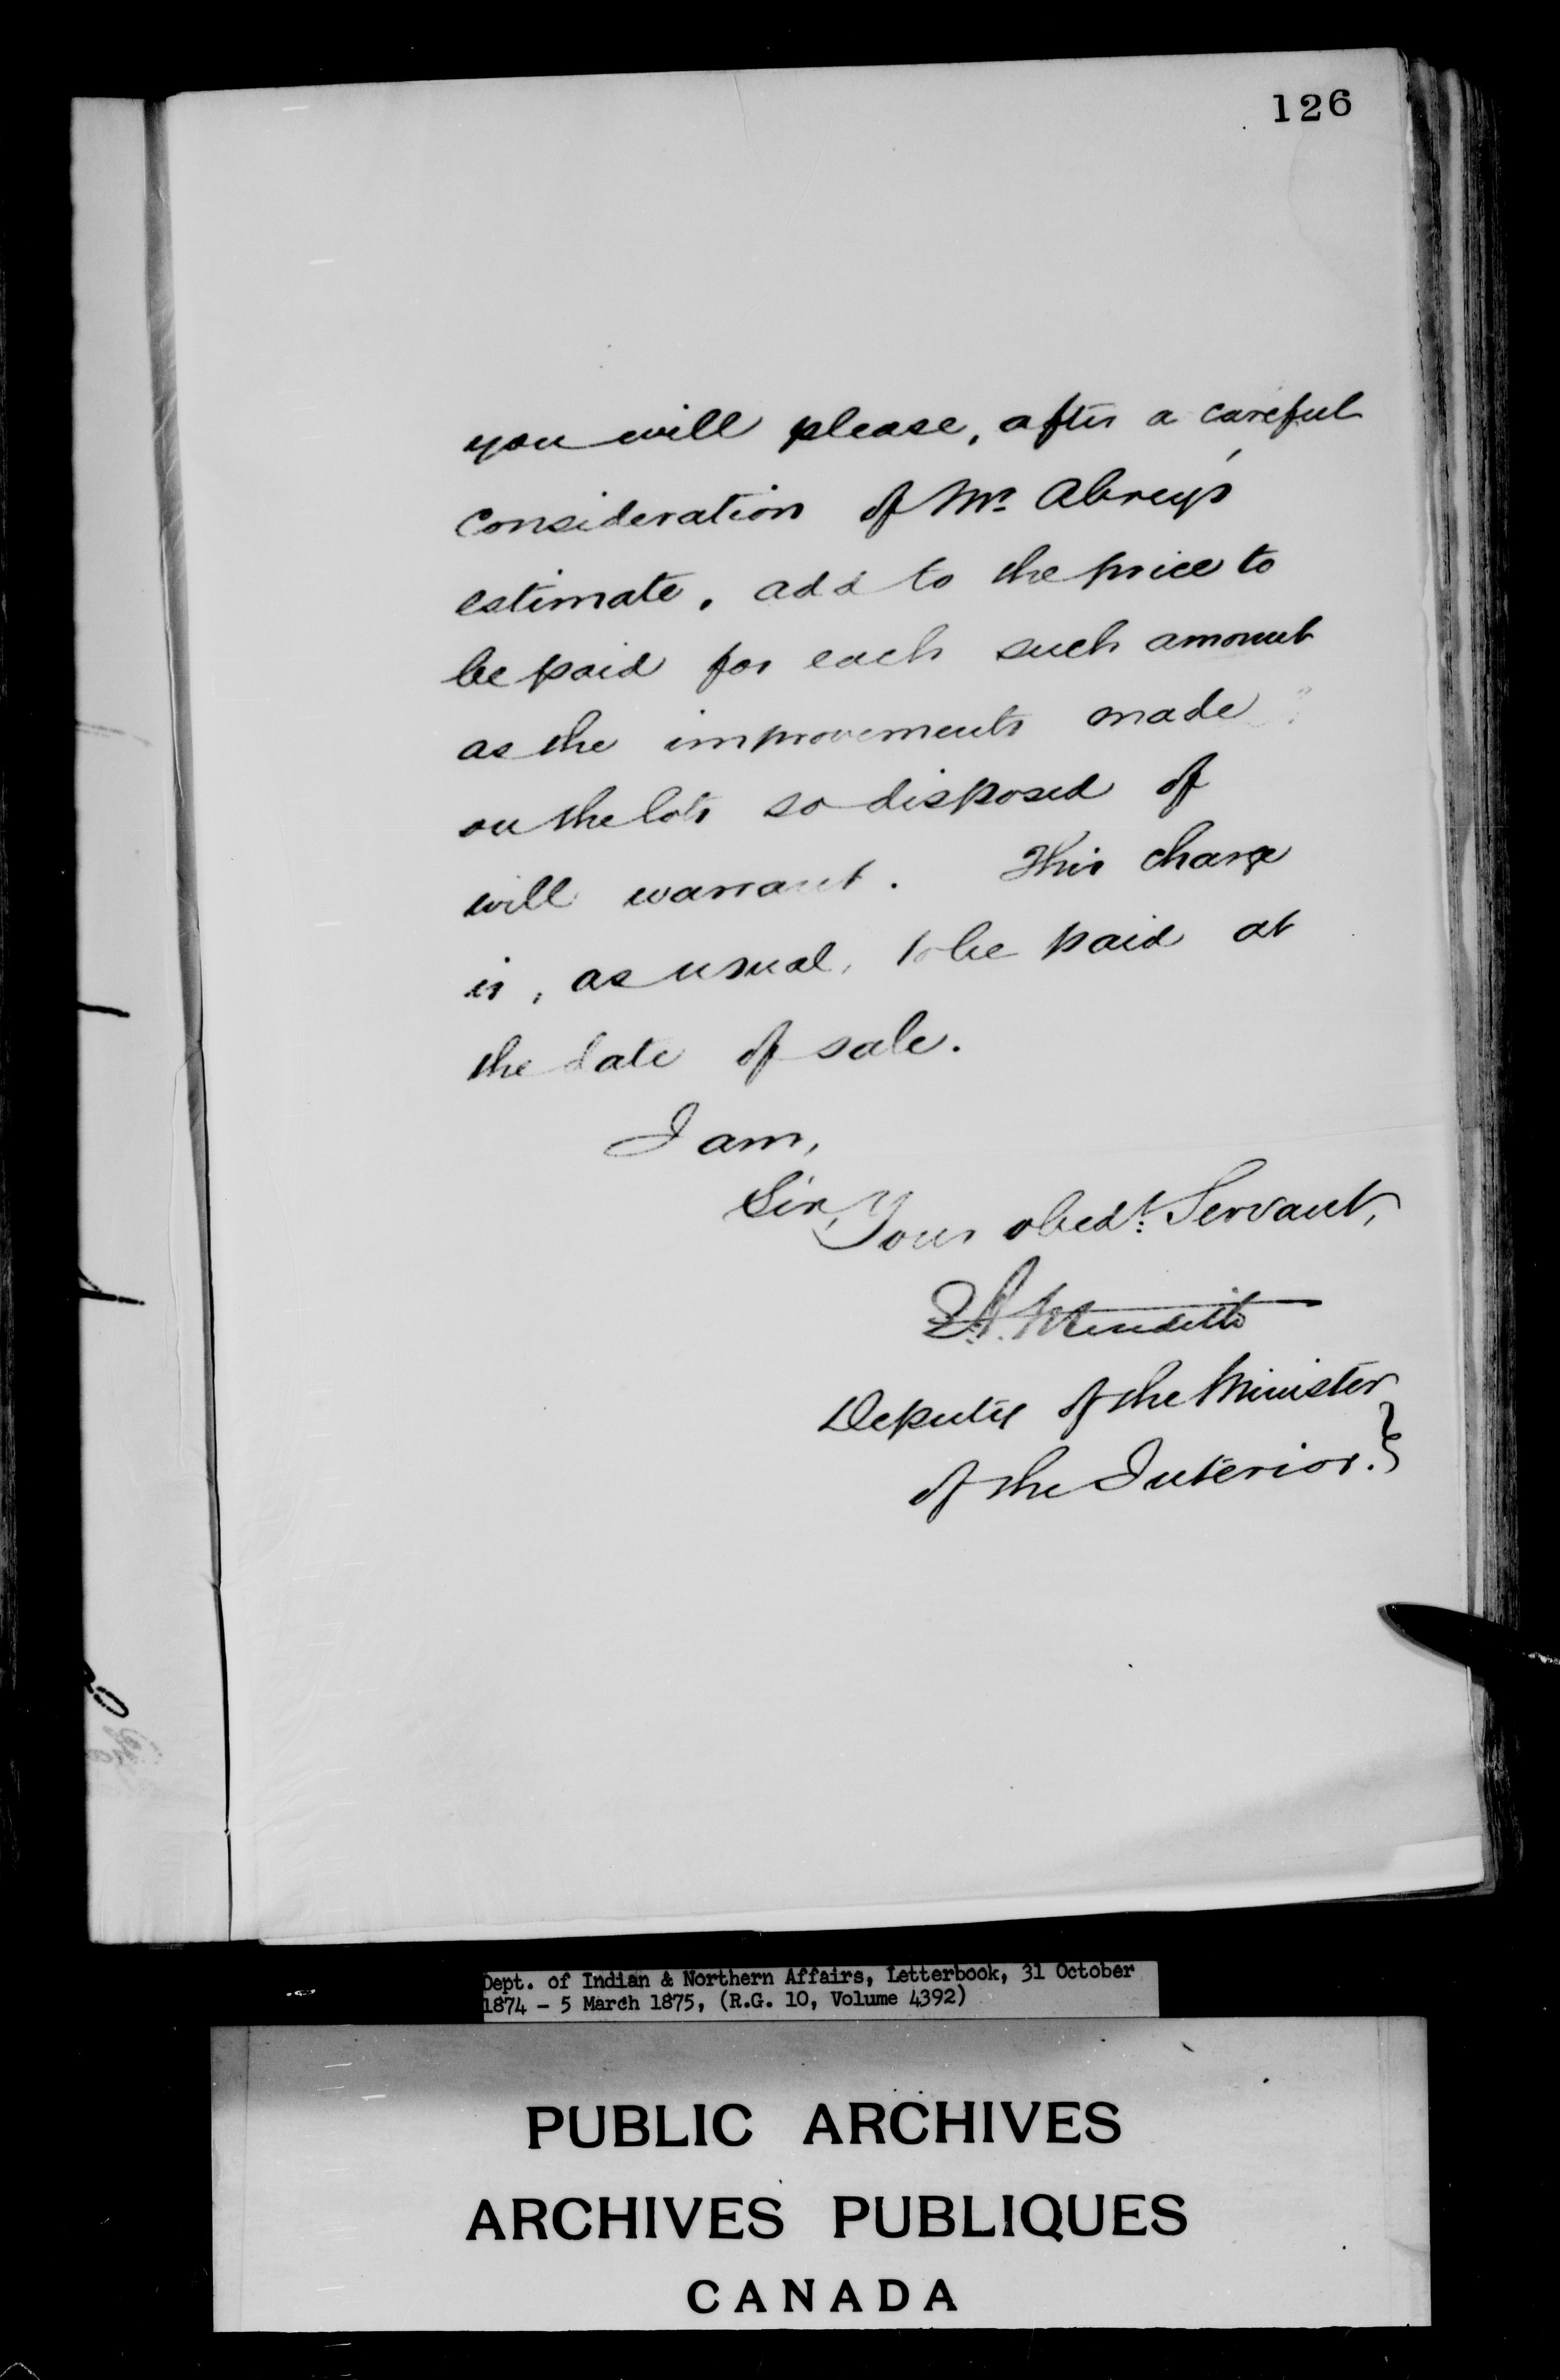 126
you will please, after a careful
consideration of Mr. Abrey's
estimate, add to the price to
be paid for each such amount
as the improvements made
on the lots so disposed of
will warrant. This charge
is, as usual, to be paid at
the date of sale.
I am,
Sir,
Your obedt. Servant,
E.A. Meredith
Deputy of the Minister
of the Interior.
Dept. of Indian & Northern Affairs, Letterbook, 31 October
1874 - 5 March 1875, (R.G. 10, Volume 4392)
PUBLIC ARCHIVES
ARCHIVES PUBLIQUES
CANADA